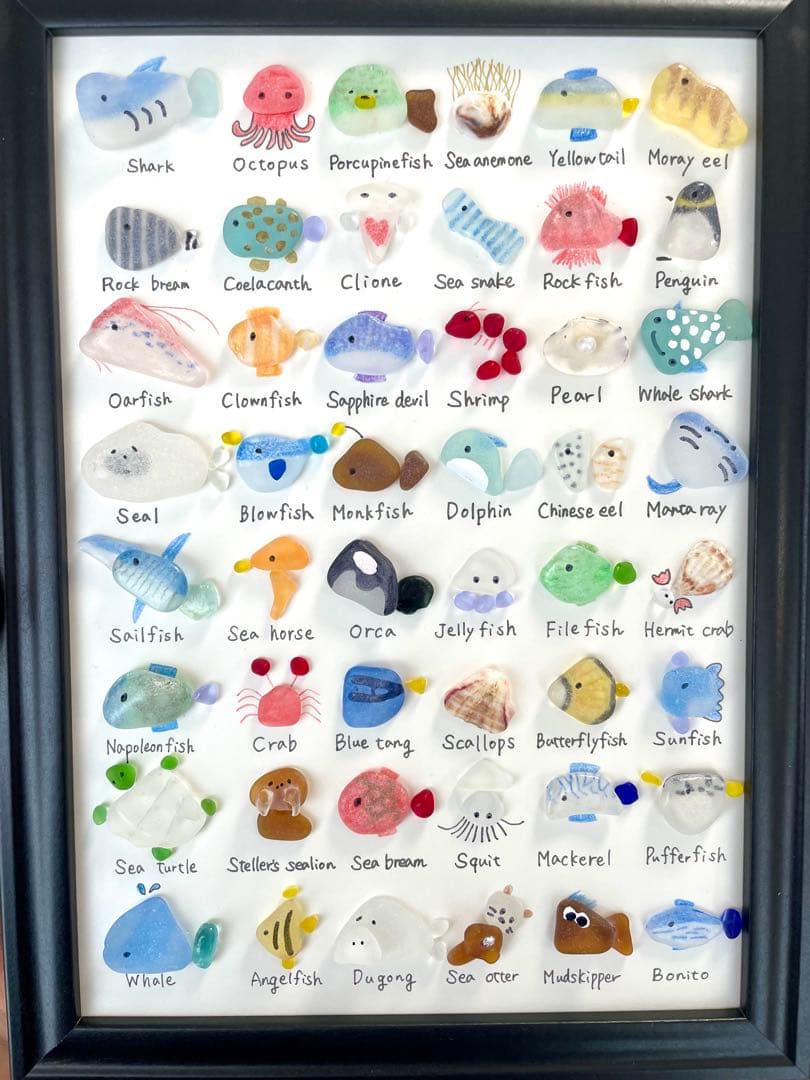 Shark Octopus Porcupinefish Sea anemone Yellowtail Moray eel
Rock bream Coelacanth Clione Sea snake Rock fish Penguin
Oarfish Clownfish Sapphire devil Shrimp Pearl Whale shark
Seal Blowfish Monkfish Dolphin Chinese eel Manta ray
Sailfish Sea horse Orca Jelly fish File fish Hermit crab
Napoleon fish Crab Blue tang Scallops Butterflyfish Sunfish
Sea Turtle Steller's sealion Sea bream Squit Mackerel Pufferfish
Whale Angelfish Dugong Sea otter Mudskipper Bonito